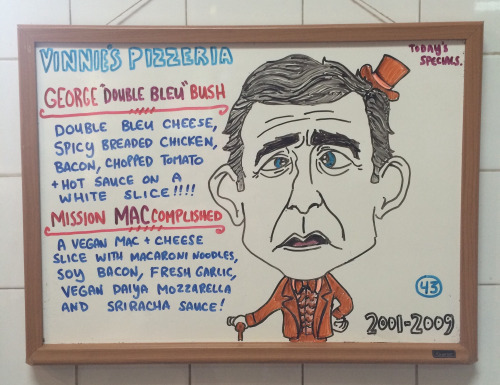 VINNIE'S PIZZERIA
TODAY'S
SPECIALS.
GEORGE "DOUBLE BLEU" BUSH
DOUBLE BLEU CHEESE,
SPICY BREADED CHICKEN,
BACON, CHOPPED TOMATO
+ HOT SAUCE ON A
WHITE SLICE!!!!
MISSION MACCOMPLISHED
A VEGAN MAC + CHEESE
SLICE WITH MACARONI NOODLES,
SOY BACON, FRESH GARLIC,
VEGAN DAIYA MOZZARELLA
AND SRIRACHA SAUCE!
43
2001-2009